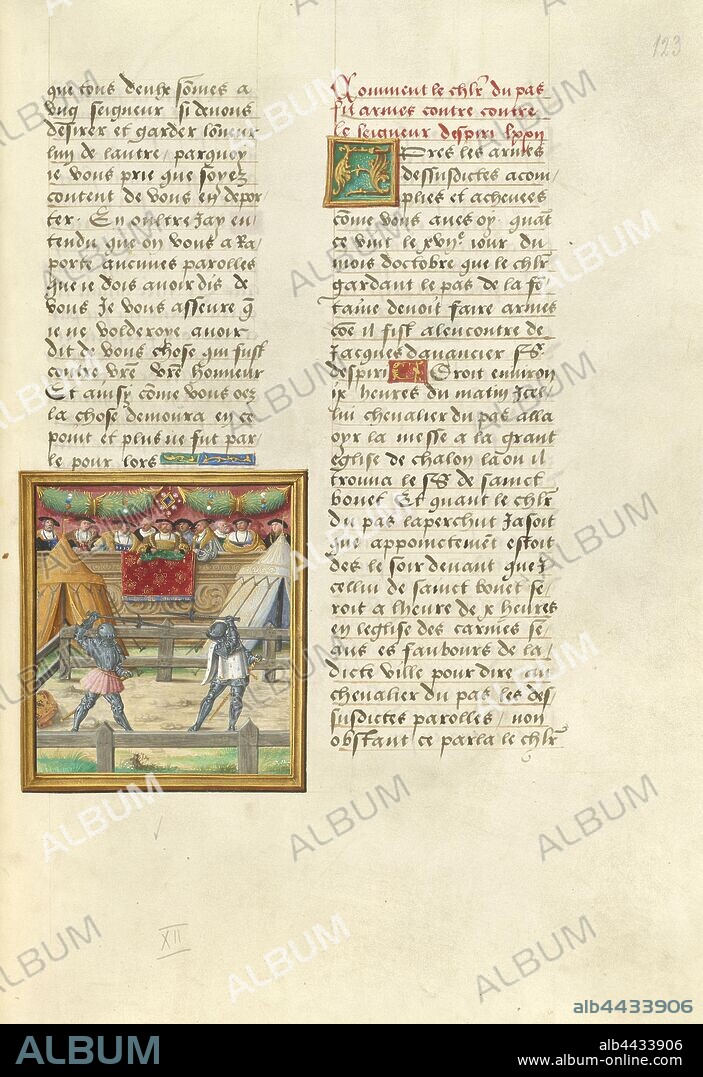 123
que tous deulx so͂mes a
vng seigneur si deuons
desirer et garder lo͂neur
lun de lautre / parquoy
ie vous prie que soyez
content de vous en depor /
ter. En oultre Jay en /
tendu que on vous a Ra /
porte aucunes parolles
que ie dois auoir dis de
vous Je vous asseure q̄
ie ne volderoye auoir
dit de vous chose qui fust
contre vr̄e vr̄e honneur
Et ainsy co͂me vous oez
la chose demoura en ce
point et plus ne fut par /
le pour lors
Comment le chl̄r du pas
fit armes contre contre
le seigneur despiri lxxii
Apres les armes
dessusdictes acom /
plies et acheuees
co͂me vous aues oy. quāt
ce vint le xvij.e iour du
mois doctobre que le chl̄r
gardant le pas de la fo͂ /
taine deuoit faire armes
co͂e il fist alencontre de
Jacques dauancier Sr.
despiri Droit enuiron
ix heures du matin Jcel /
lui cheualier du pas alla
oyr la messe a la grant
eglise de chalon la ou il
trouua le Sr de sainct
bouet Et quant le chl̄r
du pas laperchut Jasoit
que appoinctemēt estoit
des le soir deuant que J
cellui de sainct bouet se /
roit a lheure de x heures
en leglise des carmes se /
ans es faubours de la /
dicte ville pour dire au
cheualier du pas les des /
susdictes parolles / non
obstant ce parla le chl̄r
XII
ALBUM
alb4433906
ALBUM
alb4433906
www.album-online.com